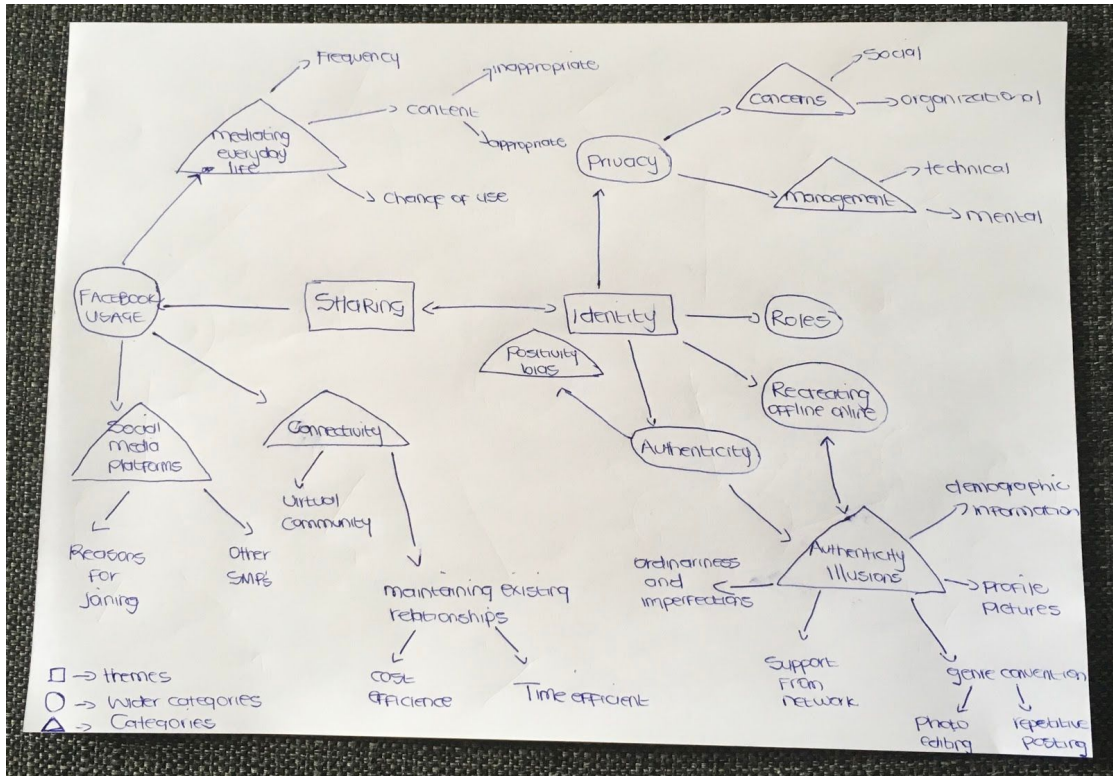 Frequency
content
inappropriate
appropriate
Change of use
mediating
everyday
life
Privacy
concerns
Social
organizational
management
technical
mental
FACEBOOK
USAGE
SHARING
Identity
Roles
Positivity
bias
Recreating
offline online
Authenticity
Social
media
platforms
Connectivity
Virtual
Community
Reasons
For
joining
Other
SMPs
maintaining existing
relationships
cost
efficience
Time efficient
Authenticity
Illusions
demographic
information
profile
pictures
ordinariness
and
imperfections
Support
From
network
genre convention
Photo
editing
repetitive
posting
□ → themes
○ → Wider categories
△ → Categories